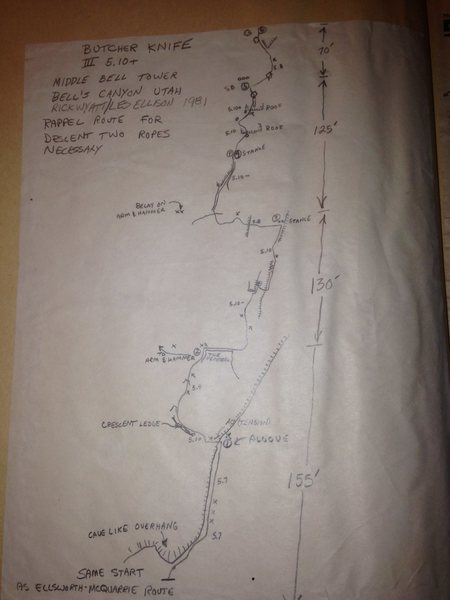 BUTCHER KNIFE
III 5.10+
MIDDLE BELL TOWER
BELL'S CANYON UTAH
RICK WYATT/LES ELLISON 1981
RAPPEL ROUTE FOR
DESCENT TWO ROPES
NECESSARY
70'
5.8
5.8
5.10a
ROOF
5.10
ROOF
125'
STANCE
5.10-
BELAY ON
ARM & HAMMER
xx
5.8
STANCE
5.10
130'
5.10-
TO
ARM & HAMMER
THE
5.9
CRESCENT LEDGE
(TENSION)
5.10
ALCOVE
5.7
155'
CAVE LIKE OVERHANG
5.7
SAME START
AS ELLSWORTH-MCQUARRIE ROUTE